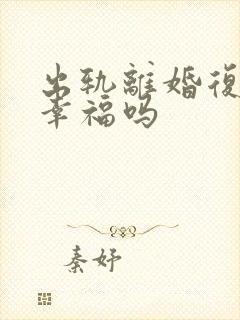 出轨離婚復
幸福吗
秦妤